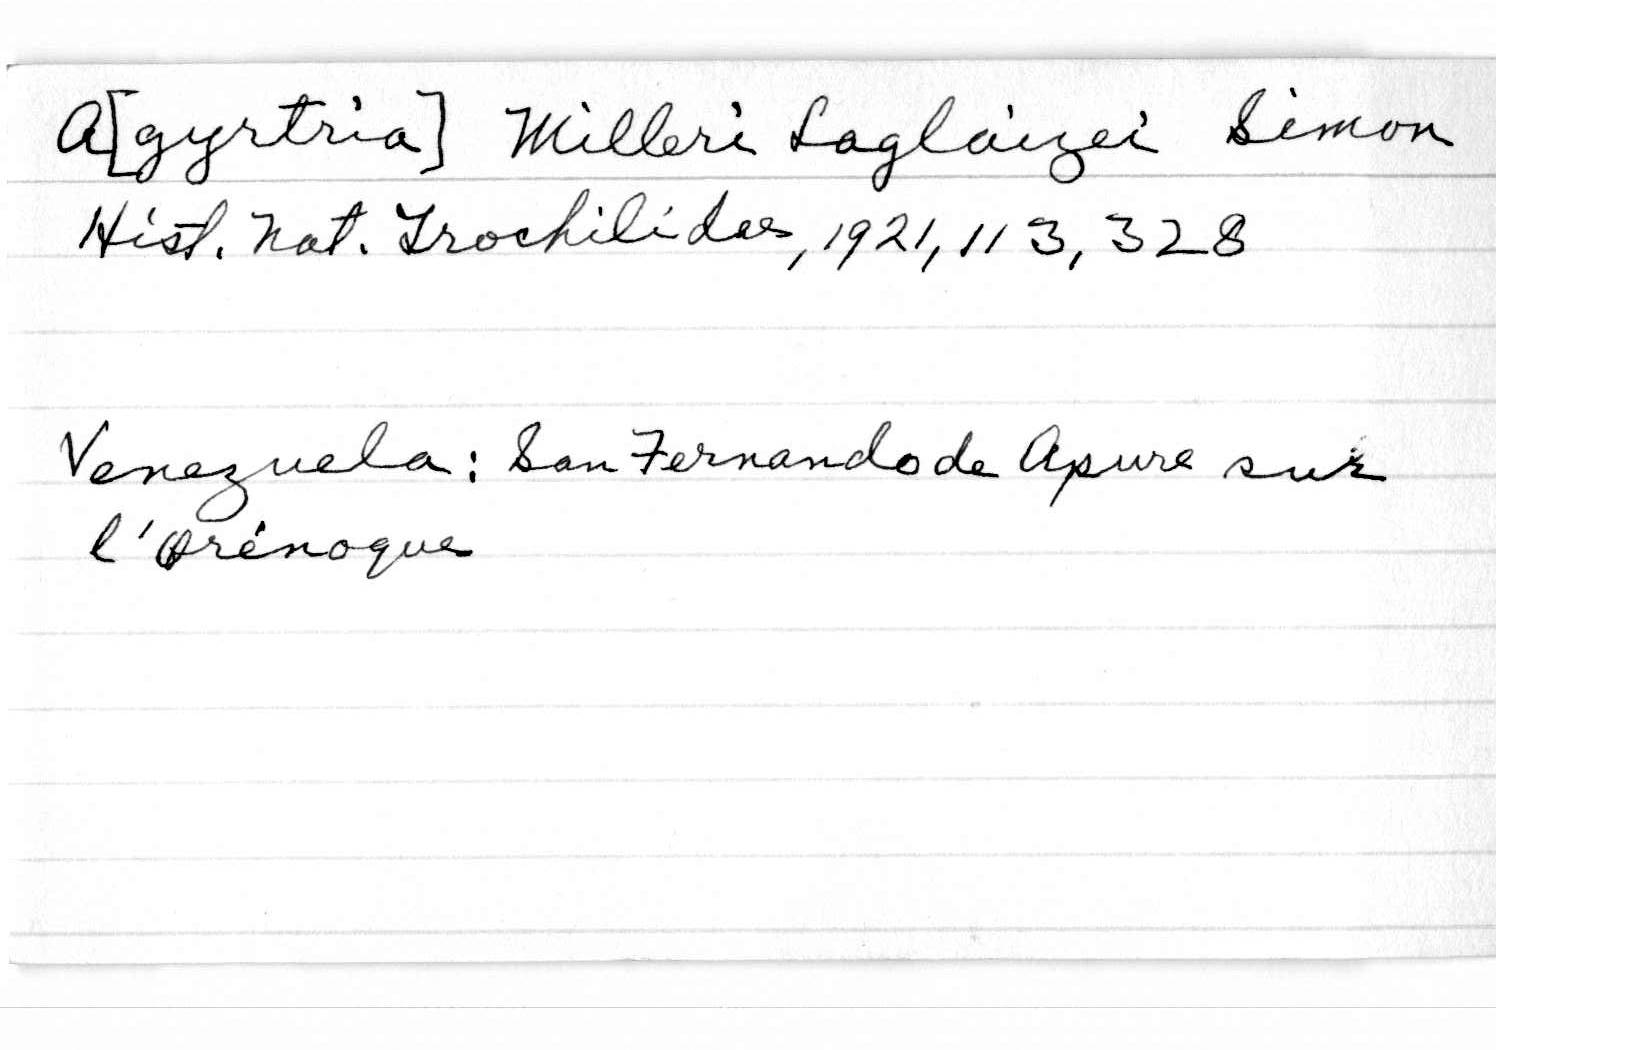 A[gyrtria] Milleri Laglaizei Simon
Hist. Nat. Trochilidae, 1921, 113, 328
Venezuela: San Fernando de Apure sur
l'Orénoque